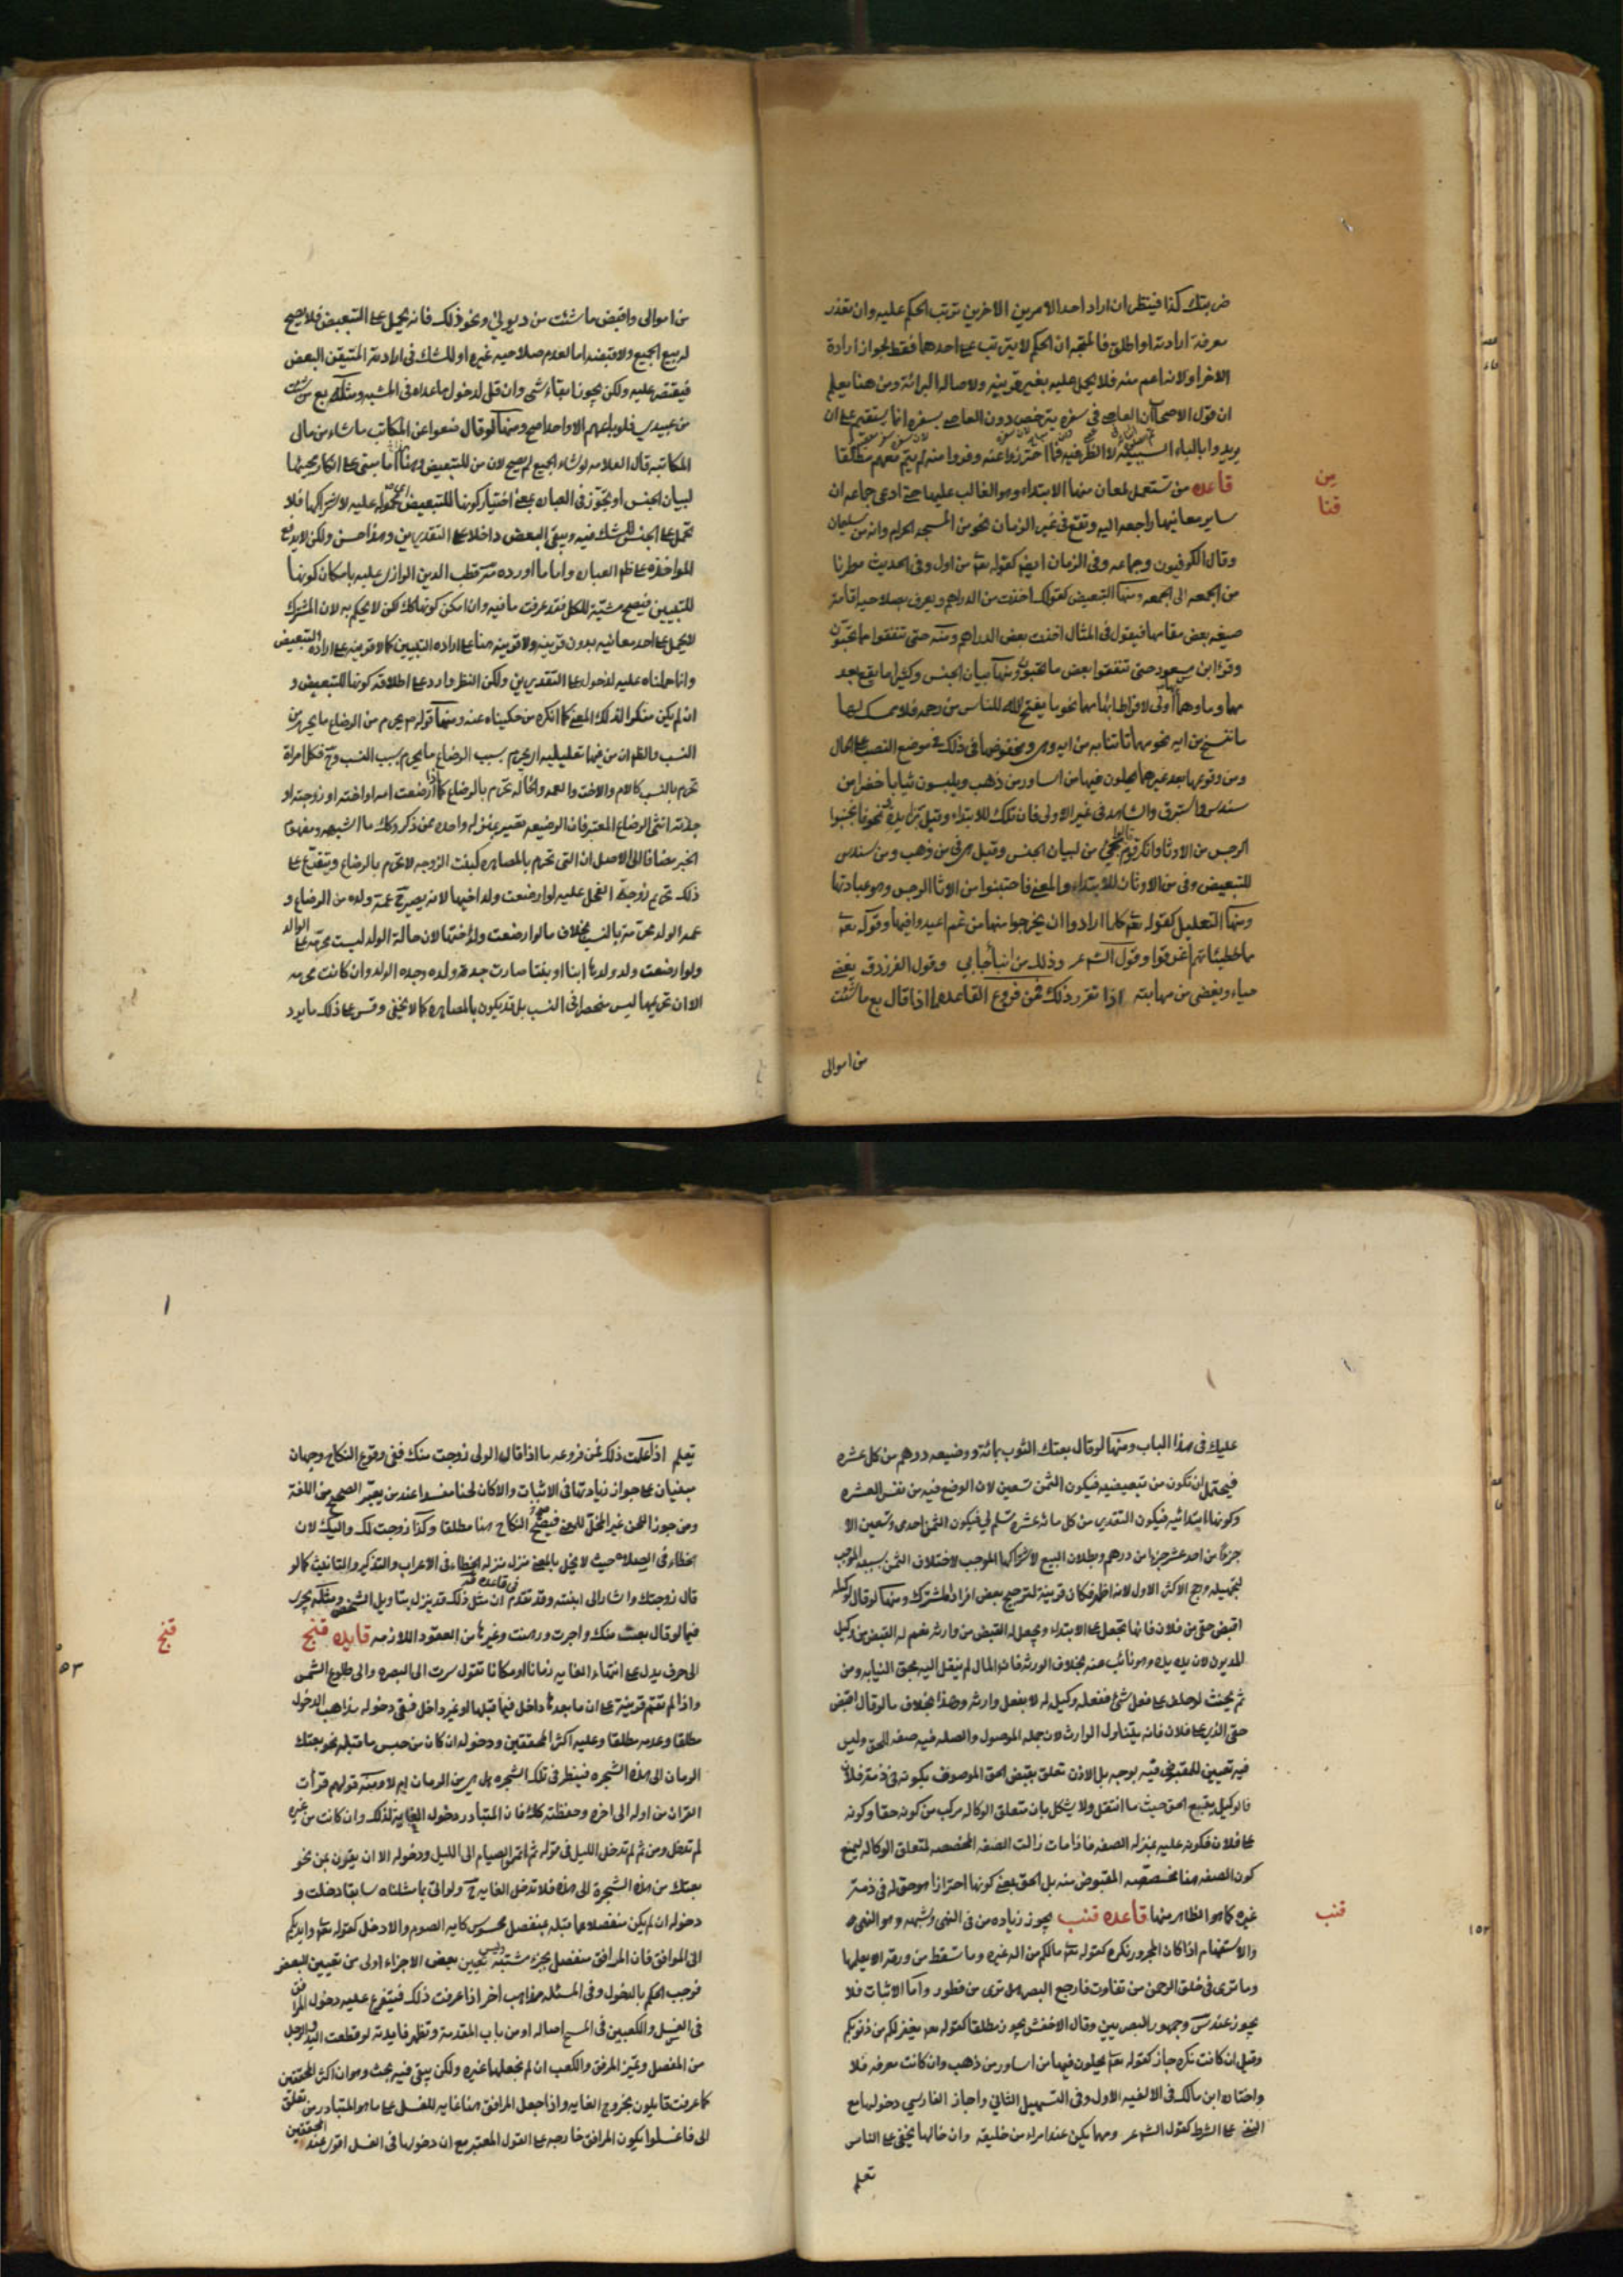 ضربتك كذا فينظر ان اراد احد الامرين الاخرين ترتب الحكم عليه وان تعذر
معرفة ارادته او اطلق فالمتجه ان الحكم لا يترتب على احدهما فقط لجواز ارادة
الاخر او لانه اعم منه فلا يحمل عليه بغير قرينه ولاصالة البرائة ومن هنا يعلم
ان قول الاصحاب ان العاصي في سفره يترخص دون العاصي بسفره انما يستقيم على ان
يريدوا بالباء السببية لا الظرفية
من
قنا
قاعده من تستعمل لمعان منها الابتداء وهو الغالب عليها حتى ادعى جماعه ان
ساير معانيها راجعه اليه وتقع في غير الزمان نحو من المسجد الحرام وانه من سليمان
وقال الكوفيون وجماعه وفي الزمان ايضا كقوله تعالى من اول وفي الحديث مطرنا
من الجمعه الى الجمعه ومنها التبعيض كقولك اخذت من الدراهم ويعرف بصلاحيه اقامة
صيغه بعض مقامها فيقول في المثال اخذت بعض الدراهم ومنه حتى تنفقوا مما تحبون
وقرء ابن مسعود حتى تنفقوا بعض ما تحبون ومنها بيان الجنس وكثيرا ما يقع بعد
ما ومهما وهما اولى لافراط ابهامهما نحو ما يفتح الله للناس من رحمه فلا ممسك لها
ما ننسخ من ايه نحو مهما تاتنا به من ايه وهي ومخفوضها في ذلك في موضع النصب على الحال
ومن وقوعها بعد غيرهما يحلون فيها من اساور من ذهب ويلبسون ثيابا خضرا من
سندس واستبرق والشاهد في غير الاولى فان تلك للابتداء وقيل زايده ونحو فاجتنبوا
الرجس من الاوثان وانكر قوم مجئ من لبيان الجنس وقيل هي في من ذهب ومن سندس
للتبعيض وفي من الاوثان للابتداء والمعنى فاجتنبوا من الاوثان الرجس وهو عبادتها
ومنها التعليل كقوله تعالى كلما ارادوا ان يخرجوا منها من غم اعيدوا فيها وقوله تعالى
مما خطيئاتهم اغرقوا وقول الشاعر وذلك من نبأ جاءني وقول الفرزدق يغضي
حياء ويغضى من مهابته اذا تقرر ذلك فمن فروع القاعدة ما اذا قال بع ما شئت
من اموالي
من اموالي واقبض ما شئت من ديوني ونحو ذلك فانه يحمل على التبعيض فلا يصح
له بيع الجميع ولا قبضه اما لعدم صلاحيه غيره او للشك في ارادته المتيقن البعض
فيقتصر عليه ولكن يجوز ابقاء شئ وان قل لدخول ما عداه في المشيه ومثله بع من شئت
من عبيدي فلو باعهم الا واحدا صح ومنها لو قال ضعوا عن المكاتب ما شاء من مال
المكاتبه قال العلامه لو شاء الجميع لم يصح لان من للتبعيض وهذا اما مبنى على انكار مجيئها
لبيان الجنس او تجوز في العبارة بمعنى اختيار كونها للتبعيض
تحمل على الجنس للشك فيه ويبقى البعض داخلا على التقديرين وهذا حسن ولكن لا يدفع
المواخذه على ظاهر العباره واما ما اورده قطب الدين الرازي عليه بامكان كونها
للتبيين فيصح مشيته للكل فقد عرفت ما فيه وان امكن كونها كك لكن لا يحكم به لان المشترك
لا يحمل على احد معانيه بدون قرينه ولا قرينه هنا على اراده التبيين كما لا قرينه على اراده التبعيض
وانما حملناه عليه لدخوله على التقديرين ولكن النظر وارد على اطلاقه كونها للتبعيض و
ان لم يكن منكرا لذلك المعنى كما انكره من حكيناه عنه ومنها قوله ص يحرم من الرضاع ما يحرم من
النسب والظ ان من فيها تعليليه اي يحرم بسبب الرضاع ما يحرم بسبب النسب وح فكل امراة
تحرم بالنسب كالام والاخت والعمه والخاله تحرم بالرضاع كما اذا ارضعت امه او اخته او زوجته او
جدته انثى الرضاع المعتبر فان الرضيعه تصير بمنزله واحده ممن ذكر وكك ما اشبهه ومفهوم
الخبر مضافا الى الاصل ان التي تحرم بالمصاهره كبنت الزوجه لا تحرم بالرضاع ويتفرع على
ذلك تحريم زوجة الفحل عليه لو ارضعت ولد اخيها لانه يصير ح عمة ولده من الرضاع و
عمه الولد محرمة بالنسب بخلاف ما لو ارضعت ولد اختها لان خالة الولد ليست محرمه على الوالد
ولو ارضعت ولد ولدها ابنا او بنتا صارت جدة ولده وجده الولد وان كانت محرمه
الا ان تحريمها ليس منحصرا في النسب بل قد يكون بالمصاهره كما لا يخفى وقس على ذلك ما يرد
عليك في هذا الباب ومنها لو قال بعتك الثوب بمائة ووضيعه درهم من كل عشره
فيحتمل ان تكون من تبعيضيه فيكون الثمن تسعين لان الوضع فيه من نفس العشره
وكونها ابتدائيه فيكون التقدير من كل مائة عشره تسلم لي فيكون الثمن احدى وتسعين الا
جزءا من احد عشر جزءا من درهم وبطلان البيع لاشتراكها الموجب لاختلاف الثمن بسببه الموجب
لتجهيله ورجح الاكثر الاول لانه اظهر فكان قرينة لترجيح بعض افراد المشترك ومنها لو قال لوكيله
اقبض حقي من فلان فانها تجعل على الابتداء ويجعل له القبض من وارثه نعم له القبض من وكيل
المديون لان يده يده وهو نائب عنه بخلاف الورثه فان المال لم ينتقل اليه بحق النيابه ومن
ثم يحنث لو حلف على فعل شئ ففعله وكيله له لا بفعل وارثه وهذا بخلاف ما لو قال اقبض
حقي الذي على فلان فانه يتناول الوارث لان جمله الموصول والصله فيه صفه للحق وليس
فيه تعيين للمقبوض فيه بوجه بل الاذن تعلق بقبض الحق الموصوف بكونه في ذمة فلان
فالوكيل يتبع الحق حيث ما انتقل ولا يشكل بان متعلق الوكاله مركب من كونه حقا وكونه
على فلان فكونه عليه بمنزله الصفه فاذا مات زالت الصفه المخصصه لمتعلق الوكاله لمنع
كون الصفه هنا مخصصه المقبوض منه بل الحق بمعنى كونها احترازا عن حق له في ذمة
قنب
غيره كما هو الظاهر منها قاعده قنب يجوز زياده من في النفي وشبهه وهو النهي
والاستفهام اذا كان المجرور نكره كقوله تعالى مالكم من اله غيره وما تسقط من ورقه الا يعلمها
وما ترى في خلق الرحمن من تفاوت فارجع البصر هل ترى من فطور واما الاثبات فلا
يجوز عند س وجمهور البصريين وقال الاخفش يجوز مطلقا كقوله تعالى يغفر لكم من ذنوبكم
وقيل ان كانت نكره جاز كقوله تعالى يحلون فيها من اساور من ذهب وان كانت معرفه فلا
واختاره ابن مالك في الالفيه الاول وفي التسهيل الثاني واجاز الفارسي دخولها مع
النفي على الشرط كقول الشاعر ومهما يكن عند امرء من خليقه وان خالها تخفى على الناس
تعلم
تعلم اذا علمت ذلك فمن فروعه ما اذا قال الولي زوجت منك ففي وقوع النكاح وجهان
مبنيان على جواز زيادتها في الاثبات والا كان لحنا مفسدا عند من يعتبر الصحيح من اللغة
ومن جوز اللحن غير المخل بالمعنى فيصح النكاح هنا مطلقا وكذا زوجت لك واليك لان
الخطاء في الصلاة حيث لا يخل بالمعنى منزل منزله الخطاء في الاعراب والتذكير والتانيث كما لو
قال زوجتك واشار الى ابنته وقد تقدم في قاعده ان مثل ذلك قد ينزل بتاويل الشخص ومثله يجرى
قنج
فيما لو قال بعت منك واجرت ورهنت وغيرها من العقود اللازمه قاعده قنج
الى حرف يدل على انتهاء الغايه زمانا او مكانا تقول سرت الى البصره والى طلوع الشمس
واذا لم تقم قرينة على ان ما بعدها داخل فيما قبلها او غير داخل ففي دخوله مذاهب الدخول
مطلقا وعدمه مطلقا وعليه اكثر المحققين ودخوله ان كان من جنس ما قبله نحو بعتك
الرمان الى هذه الشجره فينظر في تلك الشجره هل هي من الرمان ام لا ومنه قولهم قرأت
القران من اوله الى اخره وحفظته كك فان المتبادر دخول الغايه لذلك وان كانت من غيره
لم تدخل ومن ثم لم تدخل الليل في قوله ثم اتموا الصيام الى الليل ودخوله الا ان يقرن بمن نحو
بعتك من هذه الشجرة الى هذه فلا تدخل الغايه ح ولو اتى بما مثلناه سابقا دخلت و
دخوله ان لم يكن منفصلا عما قبله بمنفصل محسوس كآيه الصوم والا دخل كقوله تعالى وايديكم
الى المرافق فان المرافق منفصل بجزء مشتبه وليس تعيين بعض الاجزاء اولى من تعيين البعض
فوجب الحكم بالدخول وفي المسئله مذاهب أخر اذا عرفت ذلك فيتفرع عليه دخول المرافق
في الغسل والكعبين في المسح اصاله او من باب المقدمة وتظهر فايدته لو قطعت اليد والرجل
من المفصل وعين المرفق والكعب ان لم نجعلهما غيره ولكن يبقى فيه بحث وهو ان اكثر المحققين
كما عرفت قايلون بخروج الغايه واذا جعل المرافق هنا غايه للغسل على ما هو المتبادر من تعلق
الى فاغسلوا يكون المرافق خارجه على القول المعتبر مع ان دخولها في الغسل اقوى عند المحققين